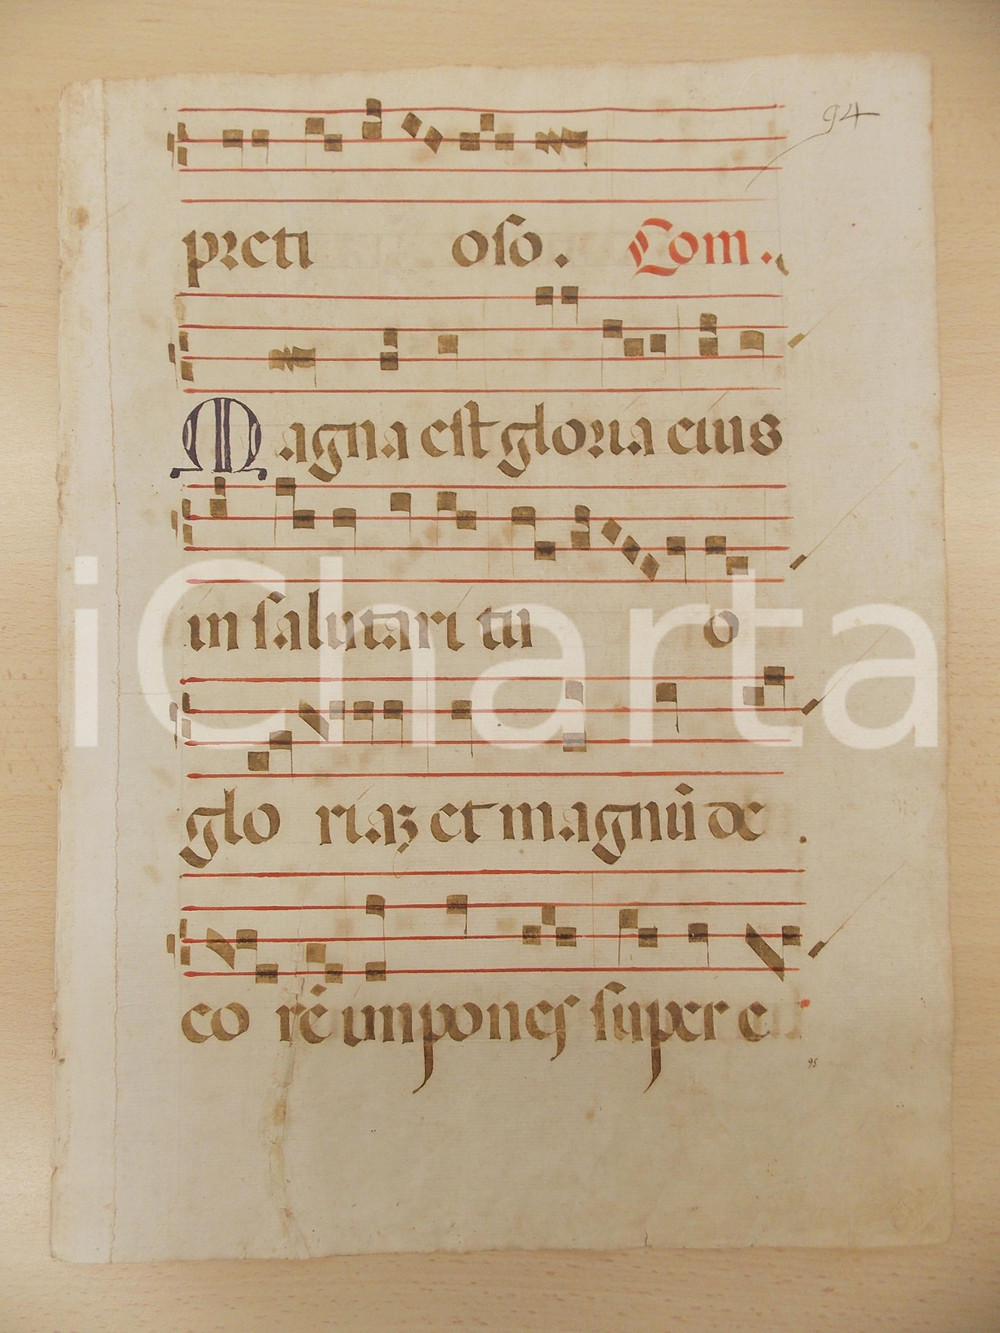 94
preti oso. Com.
Magna est gloria eius
in salutari tu o
glo riaʒ et magnū de
co rē impones super e
95
iCharta